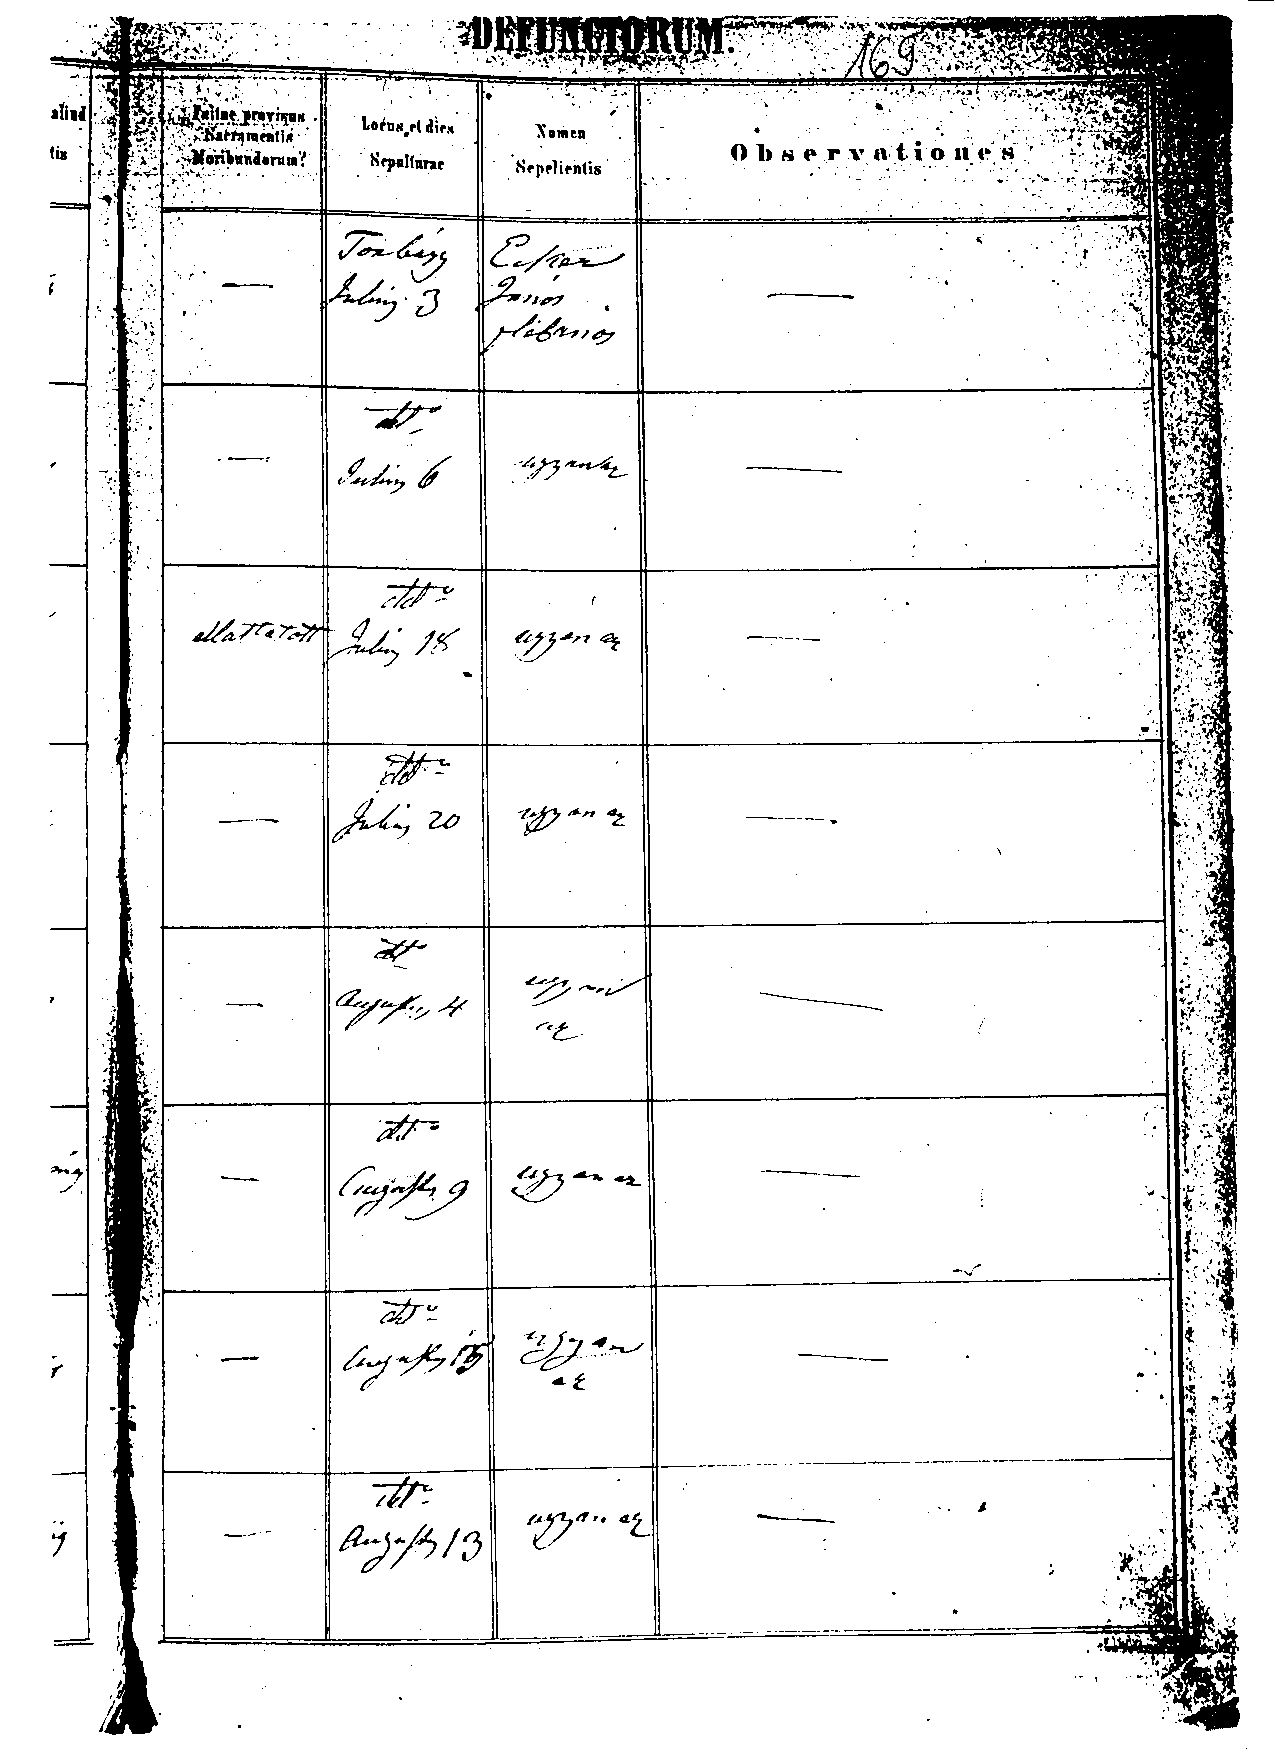 DEFUNCTORUM.
169
aliud
tis
An Fuitne provisus
Sacramentis
Moribundorum?
Locus et dies
Sepulturae
Nomen
Sepelientis
Observationes
— Torbágy Ecker —
Julius 3 János
plébános
— dto
Julius 6 ugyanaz —
elláttatott dto
Julius 18 ugyan az —
— dto
Julius 20 ugyan az —
— dto ugyan —
Augustus 4 az
— dto
Augustus 9 ugyan az —
— dto ugyan —
Augustus az
— dto
Augustus 13 ugyan az —